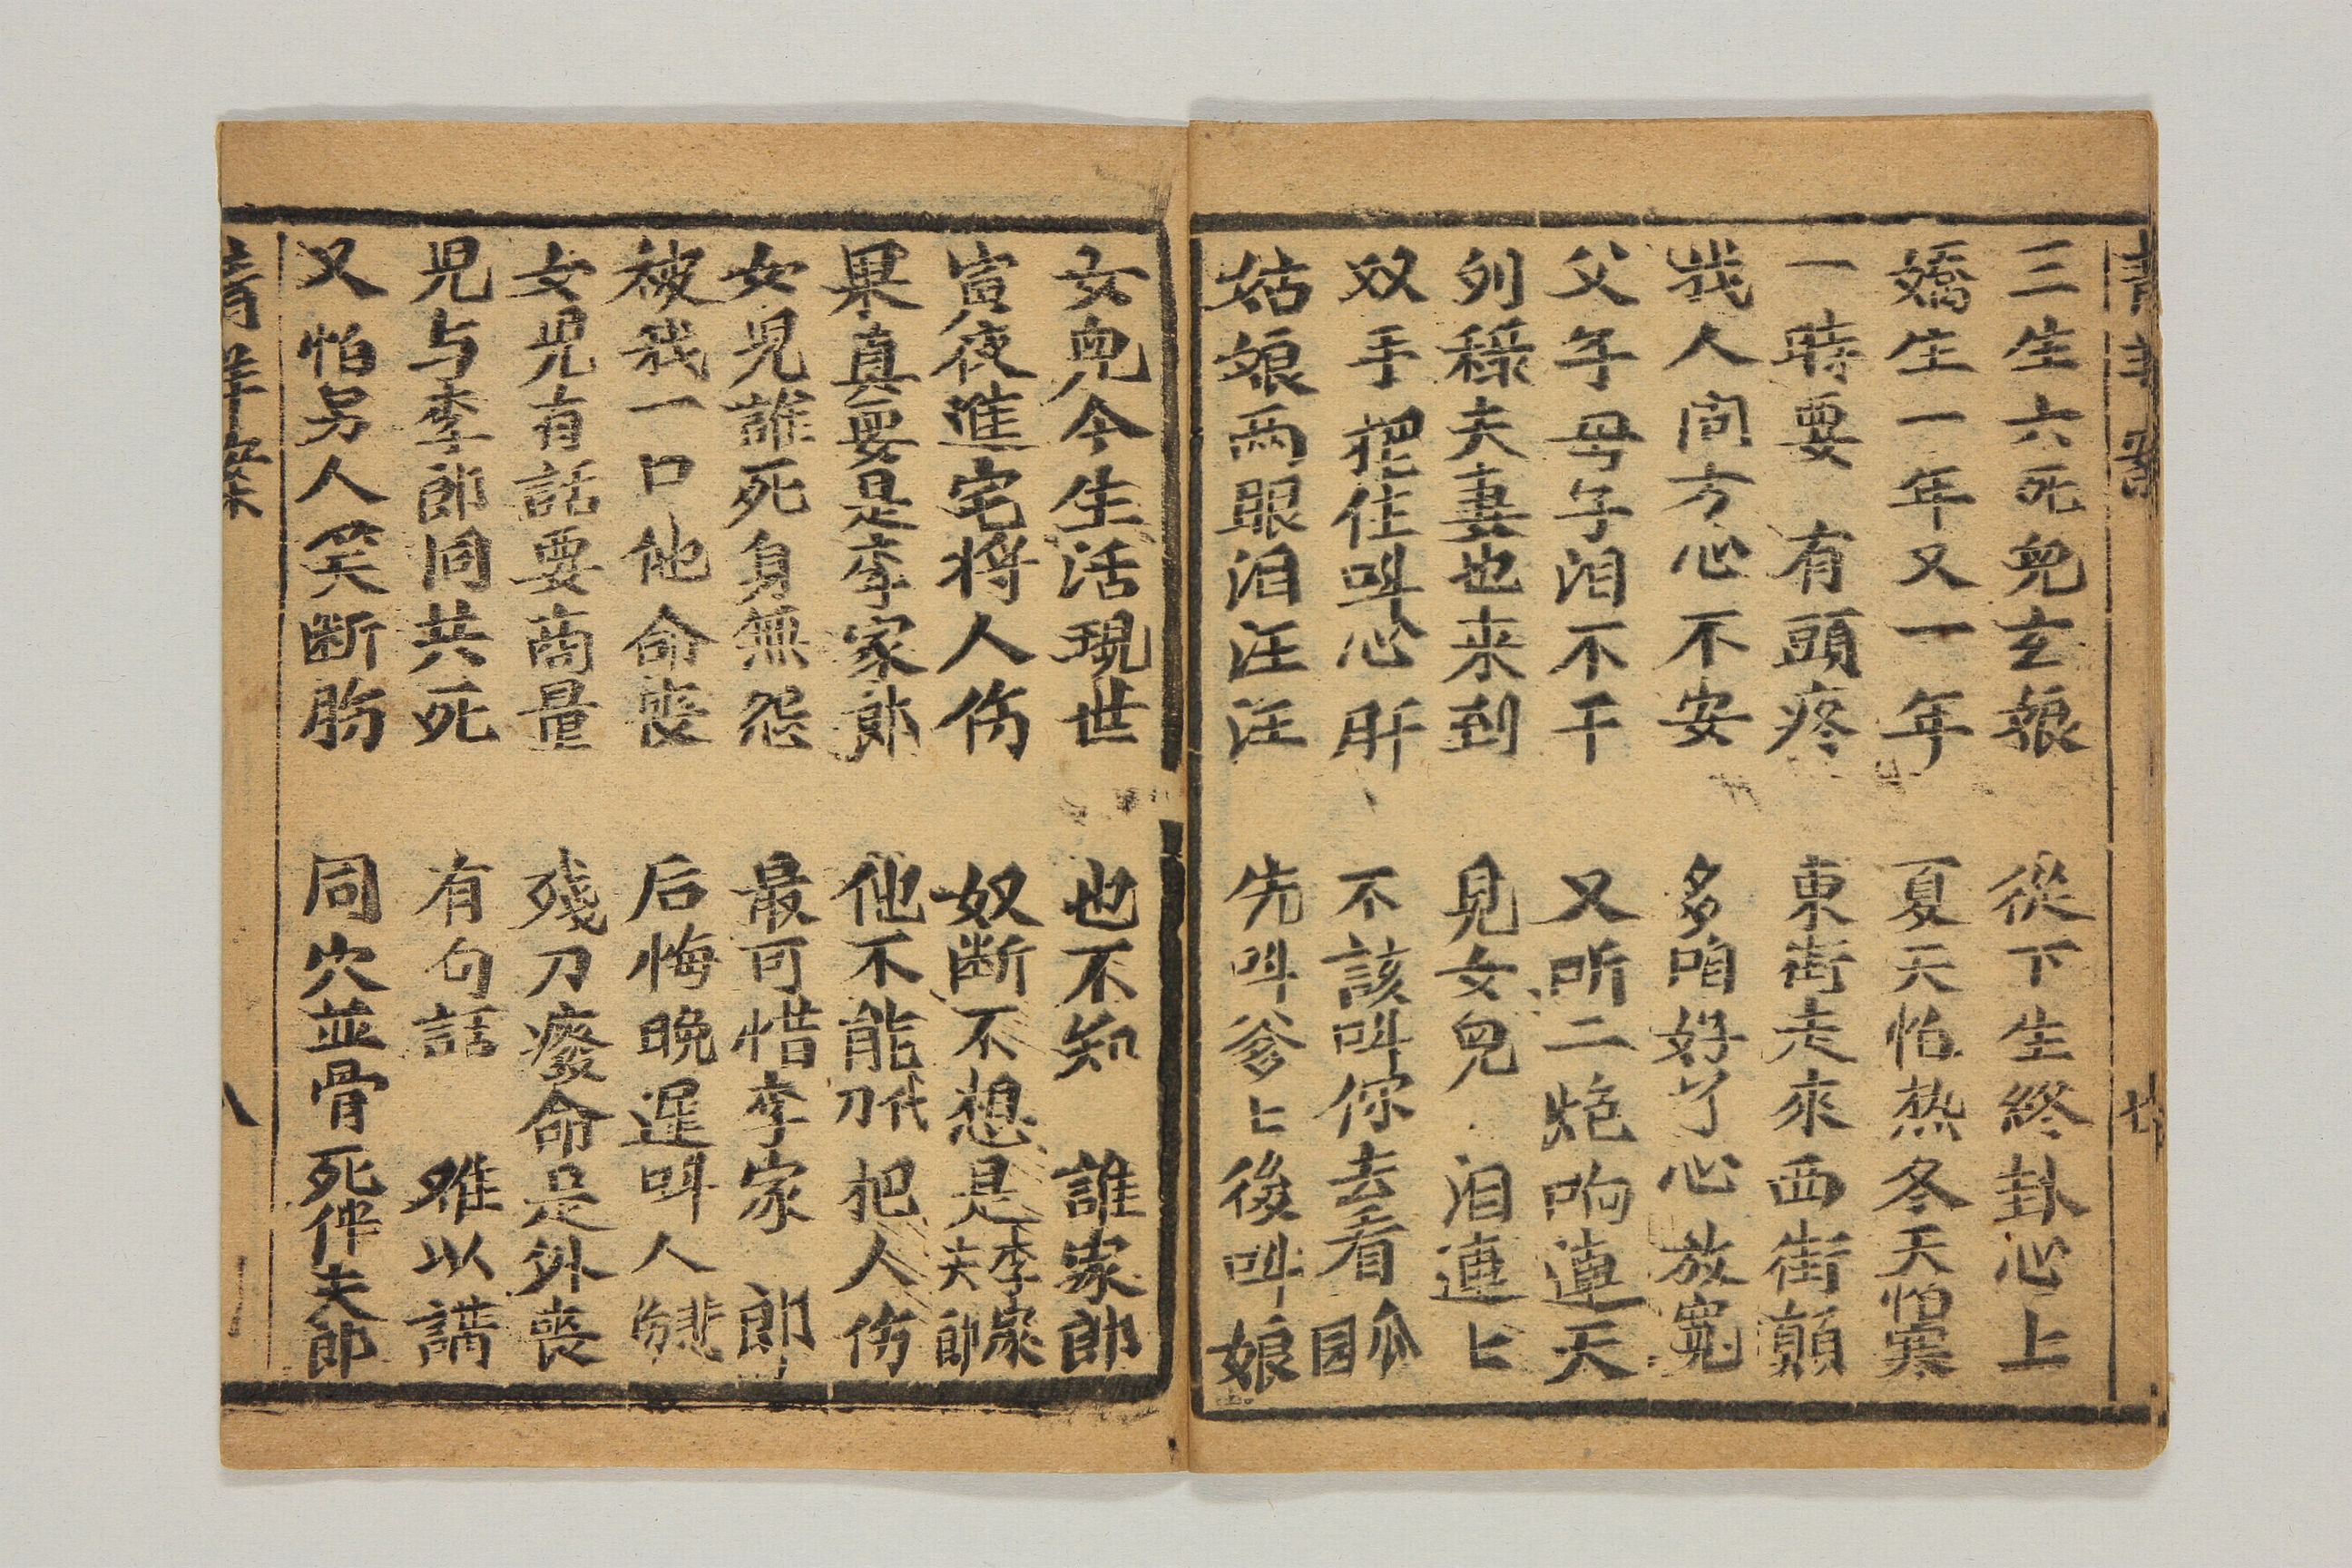 三生六死兒玄娘　從下生終卦心上
嬌生一年又一年　夏天怕热冬天怕寒
一時要有頭疼　東街走來西街顛
我人间方心不安　多咱好了心放寬
父年母子泪不干　又听二炮响連天
列祿夫妻也来到　見女兒泪連匕
双手把住叫心肝　不該叫你去看瓜园
姑娘兩眼泪汪汪　先叫爹匕後叫娘
女兒今生活現世　也不知誰家郎
寅夜進宅将人伤　奴断不想是李家夫郎
果真要是李家郎　他不能刀代把人伤
女兒誰死身無怨　最可惜李家郎
被我一口他命喪　后悔晚遲叫人
女兒有話要商量　殘刀癈命是外喪
児与李郎同共死　有句話难以講
又怕另人笑断肠　同穴並骨死伴夫郎